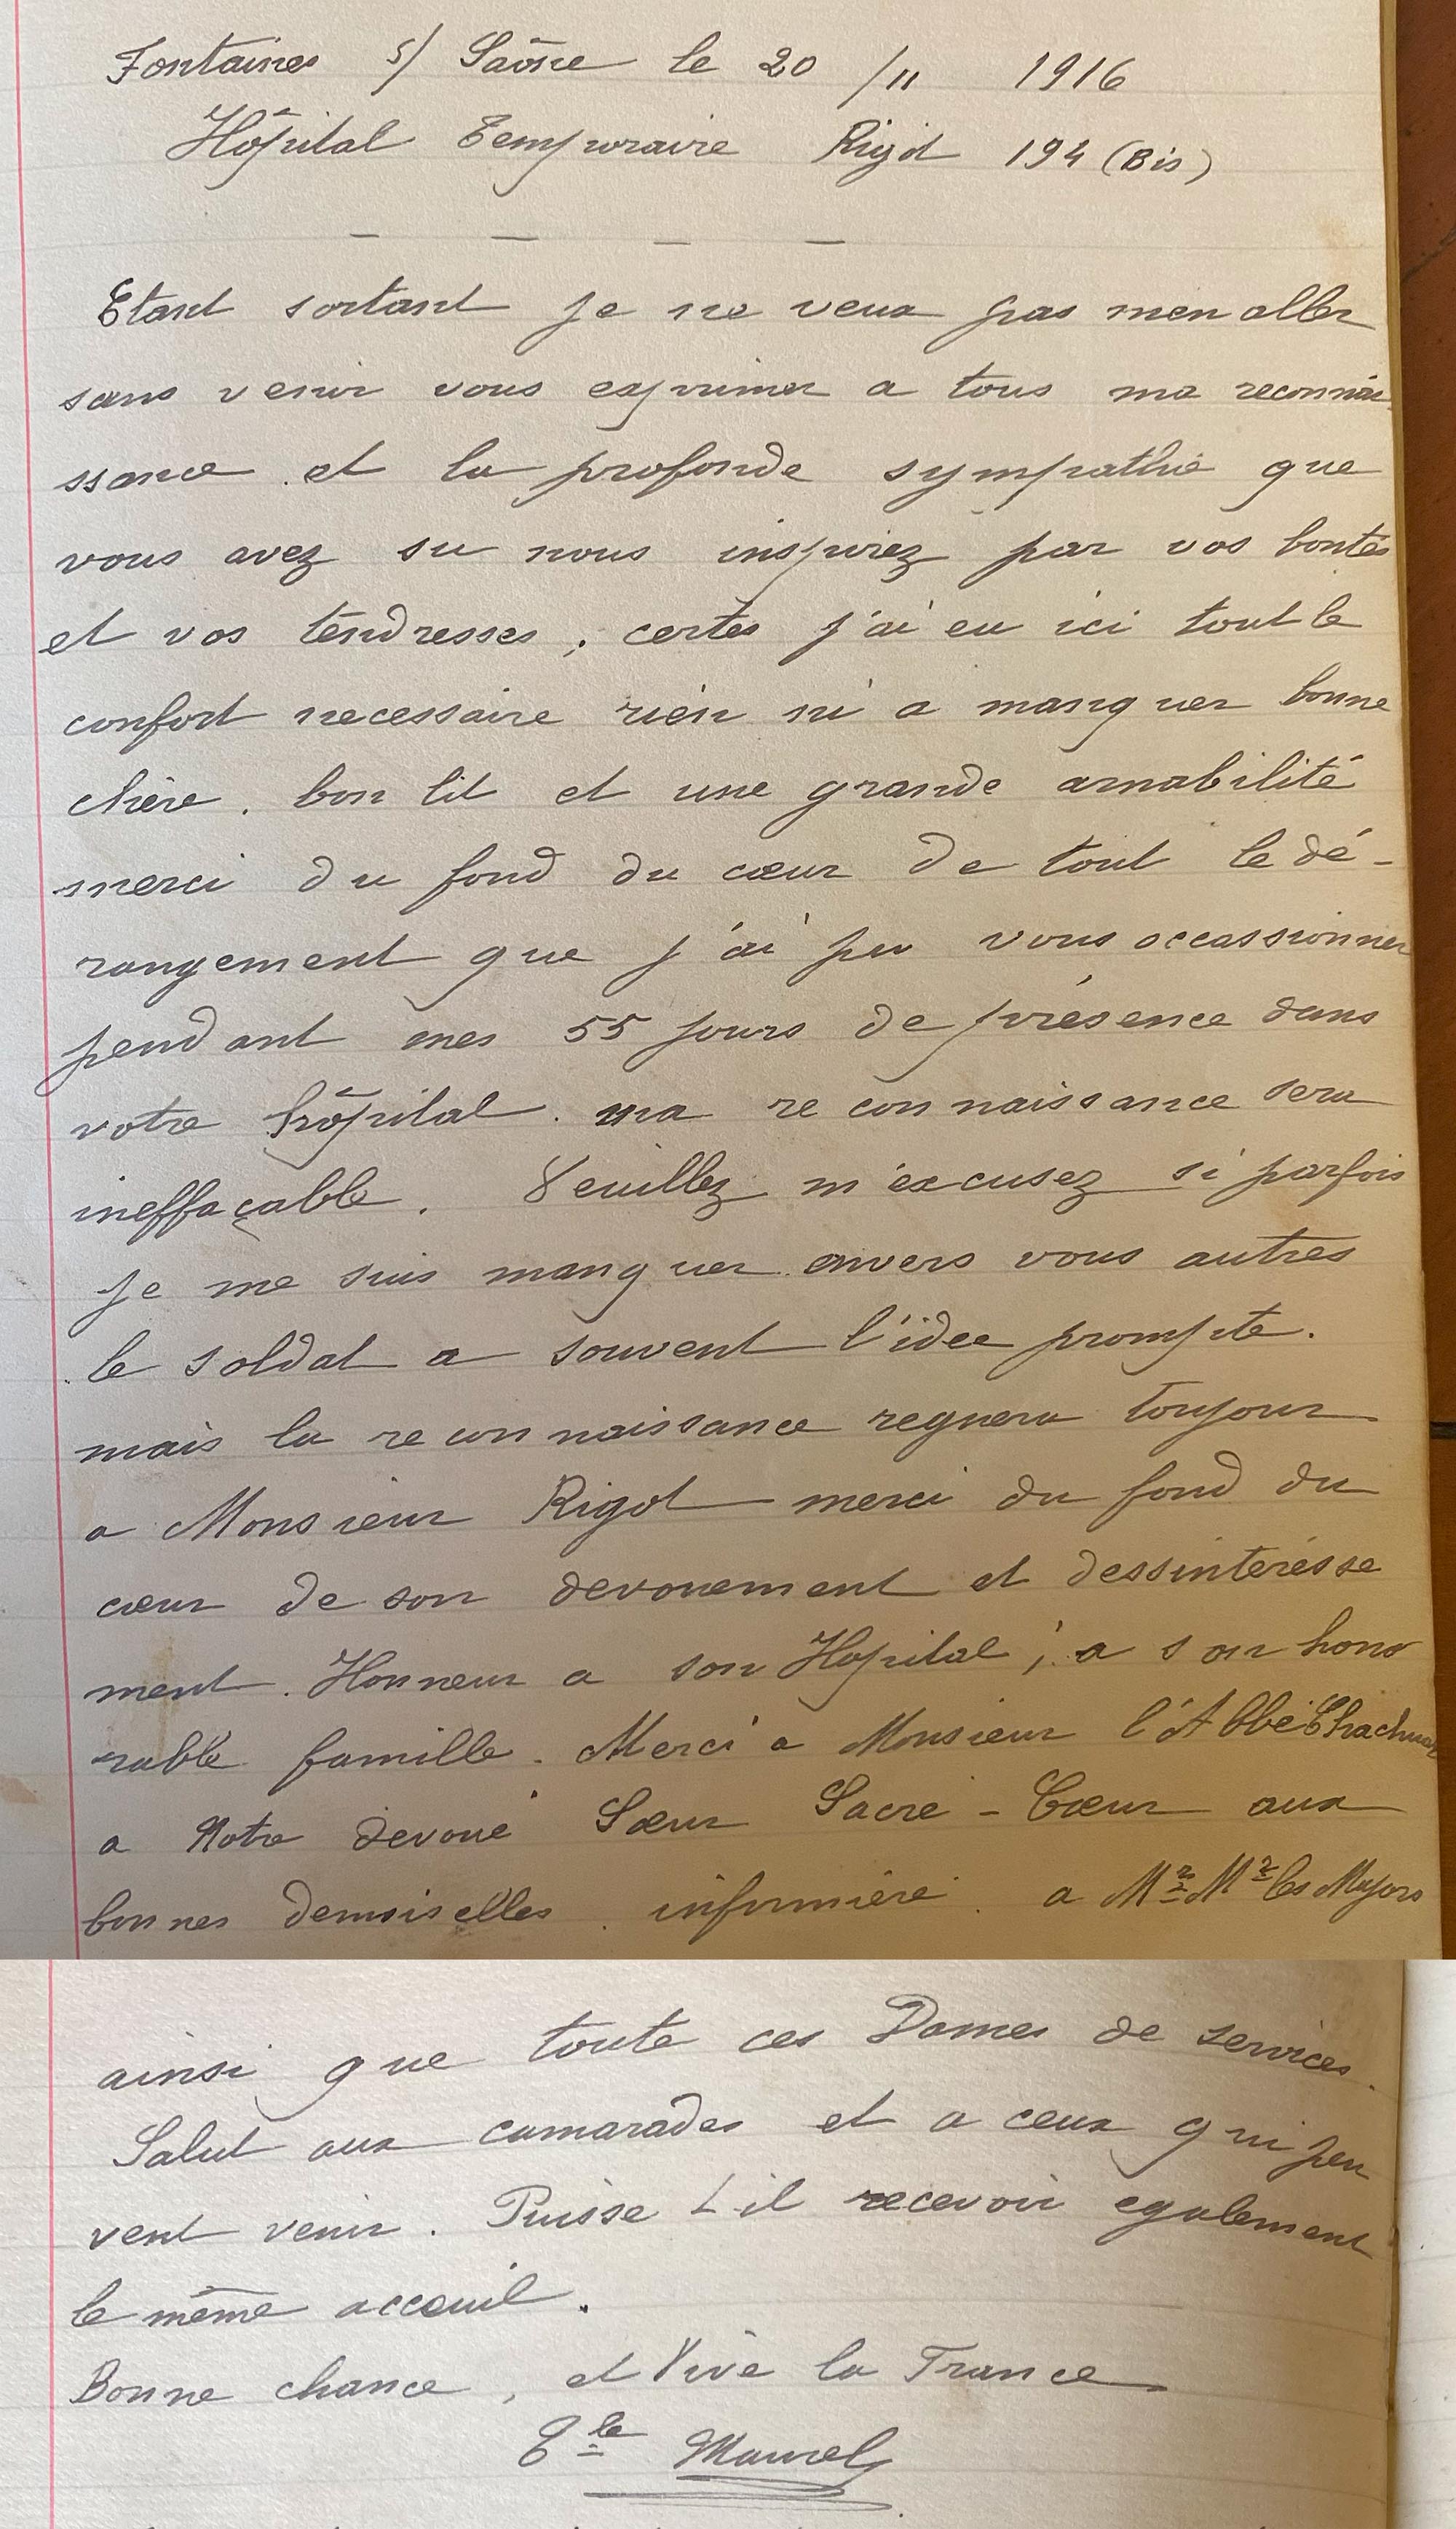 Fontaines s/ Saône le 20 /11 1916
Hôpital Temporaire Rigot 194 (Bis)
Etant sortant je ne veux pas men aller
sans venir vous exprimer a tous ma reconnai-
ssance et la profonde sympathie que
vous avez su nous inspirez par vos bontés
et vos tendresses ; certes j'ai eu ici tout le
confort necessaire rien ni a manquer bonne
chère . bon lit et une grande amabilité
merci du fond du cœur de tout le dé-
rangement que j'ai pu vous occassionner
pendant mes 55 jours de présence dans
votre hôpital . ma reconnaissance sera
ineffaçable . Veuillez m'excusez si parfois
je me suis manquer envers vous autres
le soldat a souvent l'idee prompte .
mais la reconnaissance regnera toujour
a Monsieur Rigot merci du fond du
cœur de son devouement et dessinteresse
ment . Honneur a son Hopital ; a son hono
rable famille . Merci a Monsieur l'Abbé
a Notre devoué Sœur Sacré - Cœur aux
bonnes demoiselles . infirmière . a Mr Mr les Majors
ainsi que toute ces Dames de services .
Salut aux camarades et a ceux qui peu
vent venir . Puisse t-il recevoir egalement
le même acceuil .
Bonne chance , et Vive la France